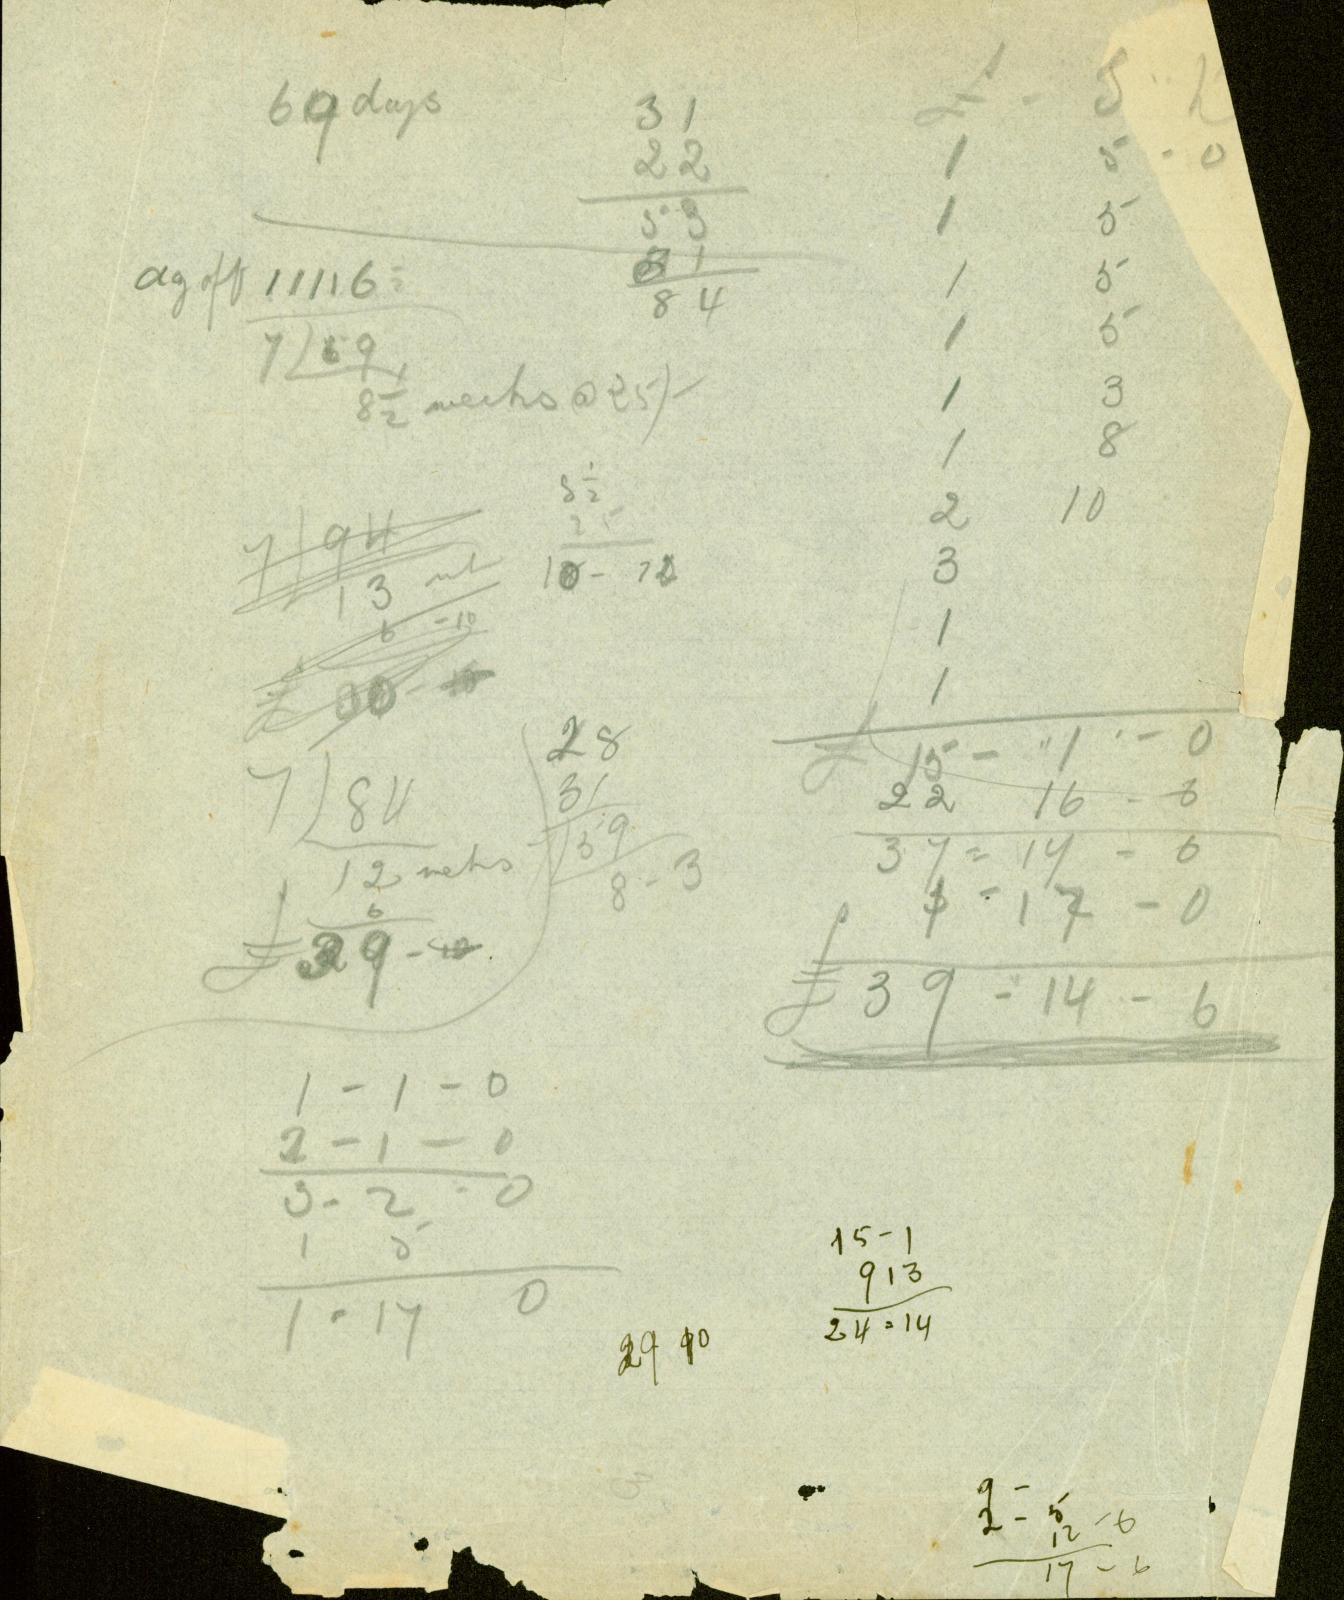 69 days
31
22
53
31
84
£ - S
1 5 - 0
1 5
1 5
1 5
1 3
1 8
2 10
3
1
1
£ 15 - 1 - 0
22 16 - 6
37 = 17 - 6
1 = 17 - 0
£ 39 - 14 - 6
11116 =
7 59
8 1/2 weeks @ 25/-
8 1/2
25
7 94
13
6 - 10
7 84
12 weeks
6
£ 39 -
28
31
59
8 - 3
1 - 1 - 0
2 - 1 - 0
3 - 2 - 0
1 5
1 - 17 0
29 10
15 - 1
9 13
24 = 14
2 = 5
12 - 6
17 - 6